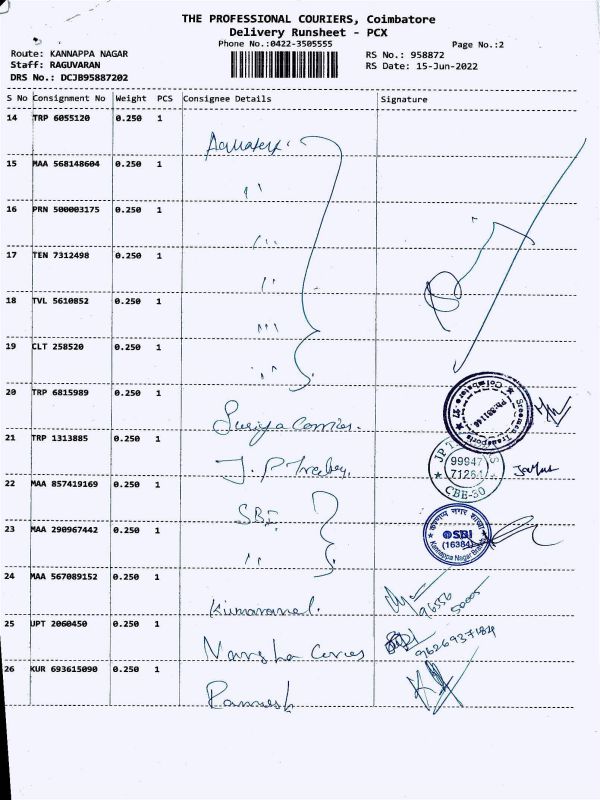 THE PROFESSIONAL COURIERS, Coimbatore
Delivery Runsheet - PCX
Phone No.:0422-3505555
Page No.:2
Route: KANNAPPA NAGAR
Staff: RAGUVARAN
DRS No.: DCJB95887202
RS No.: 958872
RS Date: 15-Jun-2022
S No Consignment No Weight PCS Consignee Details Signature
14 TRP 6055120 0.250 1
15 MAA 568148604 0.250 1 ''
16 PRN 500003175 0.250 1 ''
17 TEN 7312498 0.250 1 ''
18 TVL 5610852 0.250 1 '''
19 CLT 258520 0.250 1 ''
20 TRP 6815989 0.250 1
21 TRP 1313885 0.250 1 J. P
22 MAA 857419169 0.250 1 SBI
23 MAA 290967442 0.250 1 ''
24 MAA 567089152 0.250 1 Kumaravel.
25 UPT 2060450 0.250 1
26 KUR 693615090 0.250 1 Ramesh
Coimbatore
99947
CBE-30
कण्णप्प नगर शाखा
SBI
(16384)
Kannappa Nagar Branch
96556
50005